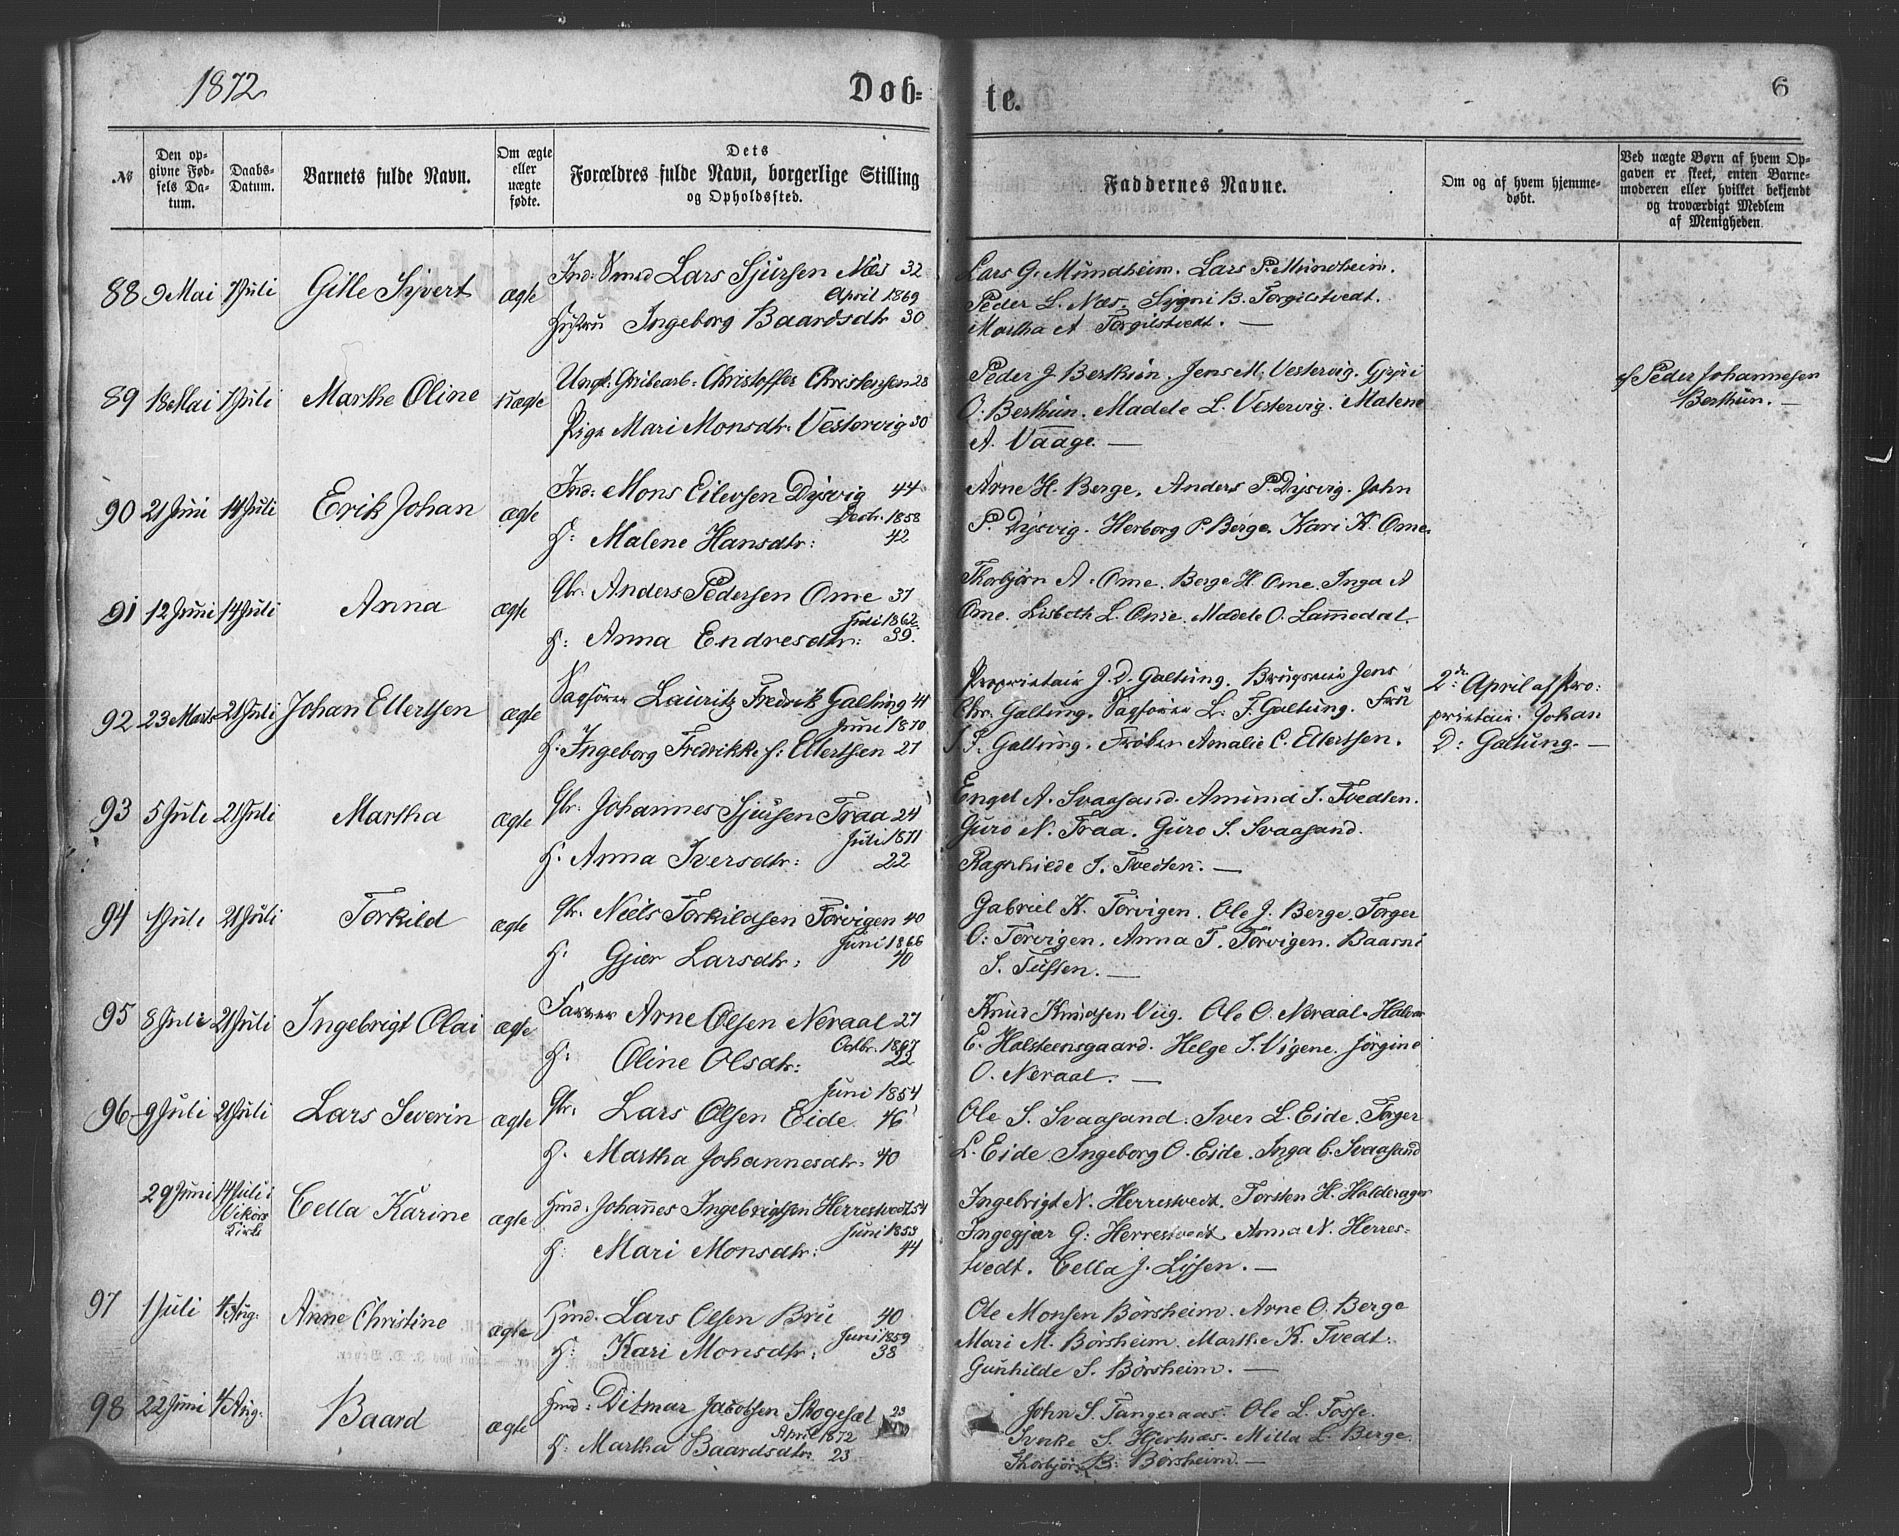 1872
Døb-
te.
6
№
Den op-
givne Fød-
sels Da-
tum.
Daabs-
Datum.
Barnets fulde Navn.
Om ægte
eller
uægte
fødte.
Dets
Forældres fulde Navn, borgerlige Stilling
og Opholdssted.
Faddernes Navne.
Om og af hvem hjemme-
døbt.
Ved uægte Børn af hvem Op-
gaven er skeet, enten Barne-
moderen eller hvilket bekjendt
og troværdigt Medlem
af Menigheden.
88 9 Mai 7 Juli Gitle Syvert ægte
Ind: Lars Sjursen Næs 32
April 1869
Hustru Ingeborg Baardsdtr 30
Lars G. Mundheim. Lars P. Mundheim.
Peder L. Næs. Sygni B. Torgilstvedt.
Martha A Torgilstvedt. —
89 18 Mai 7 Juli Marthe Oline uægte
Ungk: Christoffer Christensen 28
Pige Mari Monsdtr: Vestervig 30
Peder J Berthun. Jens M. Vestervig. Gjøri
O. Berthun. Madele L. Vestervig. Malene
A. Vaage. —
af Peder Johannesen
Berthun. —
90 21 Juni 14 Juli Erik Johan ægte
Ind: Mons Eilevsen Dysvig 44
Decbr. 1858
H: Malene Hansdtr: 42
Arne H. Berge. Anders P. Dysvig. John
P. Dysvig. Herborg P. Berge. Kari K. Ome.
91 12 Juni 14 Juli Anna ægte
Gbr: Anders Pedersen Ome 37
Juli 1862
H: Anna Endresdtr: 39.
Thorbjørn A. Ome. Berge H. Ome. Inga A
Ome. Lisbeth L. Ome. Madele O. Lammedal.
92 23 Marts 21 Juli Johan Ellertsen ægte
Sagfører Lauritz Fredrik Galtung 41
Juni 1870
H. Ingeborg Fredrikke f: Ellertsen 27
Proprietair J. D. Galtung. Jens
Chr. Galtung. Sagfører L. F. Galtung. Fru
I. F. Galtung. Frøken Amalie C. Ellertsen.
2den April af Pro:
prietair Johan
D: Galtung. —
93 5 Juli 21 Juli Martha ægte
Gbr: Johannes Sjursen Traa 24
Juli 1871
H. Anna Iversdtr: 22
Engel A. Svaasand. Amund I. Tvedten.
Guro N. Traa. Guro S. Svaasand.
Ragnhilde I. Tvedten. —
94 1 Juli 21 Juli Torkild ægte
Gbr. Neels Torkildsen Torvigen 40
Juni 1866
H. Gjøer Larsdtr: 40
Gabriel K. Torvigen. Ole J. Berge. Torger
O: Torvigen. Anna T. Torvigen. Baarni
S. Tuften. —
95 8 Juli 21 Juli Ingebrigt Olai ægte
Farver Arne Olsen Neraal 27
Octbr. 1867
H: Oline Olsdtr: 22
Knud Knudsen Viig. Ole O. Neraal. Halvor
E. Halsteensgaard. Helge S. Vigene. Jørgine
O. Neraal. —
96 9 Juli 21 Juli Lars Severin ægte
Juni 1854
Gbr. Lars Olsen Eide 46
H. Martha Johannesdtr. 40
Ole S. Svaasand. Iver L. Eide. Torger
L. Eide. Ingeborg O. Eide. Inga C. Svaasand
29 Juni 14 Juli i
Vikørs
Kirke
Cella Karine ægte
Huusd. Johannes Ingebrigtsen Herrestvedt 54
Juni 1853
H: Mari Monsdtr: 44
Ingebrigt N. Herrestvedt. Torsten H. Halderager
Ingegjær G: Herrestvedt Anna N. Herres-
tvedt. Cella J. Lysen. —
97 1 Juli 4 Aug. Anne Christine ægte
Huusd. Lars Olsen Bru 40
Juni 1859
H: Kari Monsdtr. 38
Ole Monsen Børsheim. Arne O. Berge
Mari M. Børsheim. Marthe K. Tvedt.
Gunhilde S. Børsheim. —
98 22 Juni 4 Aug. Baard ægte
Huusd: Ditmar Jacobsen Skogesæl 23
April 1872
H: Martha Baardsdtr. 23
John S. Tangeraas. Ole L. Fosse.
Sverke S. Hjertnæs. Milla L. Berge.
Thorbjør B. Børsheim. —